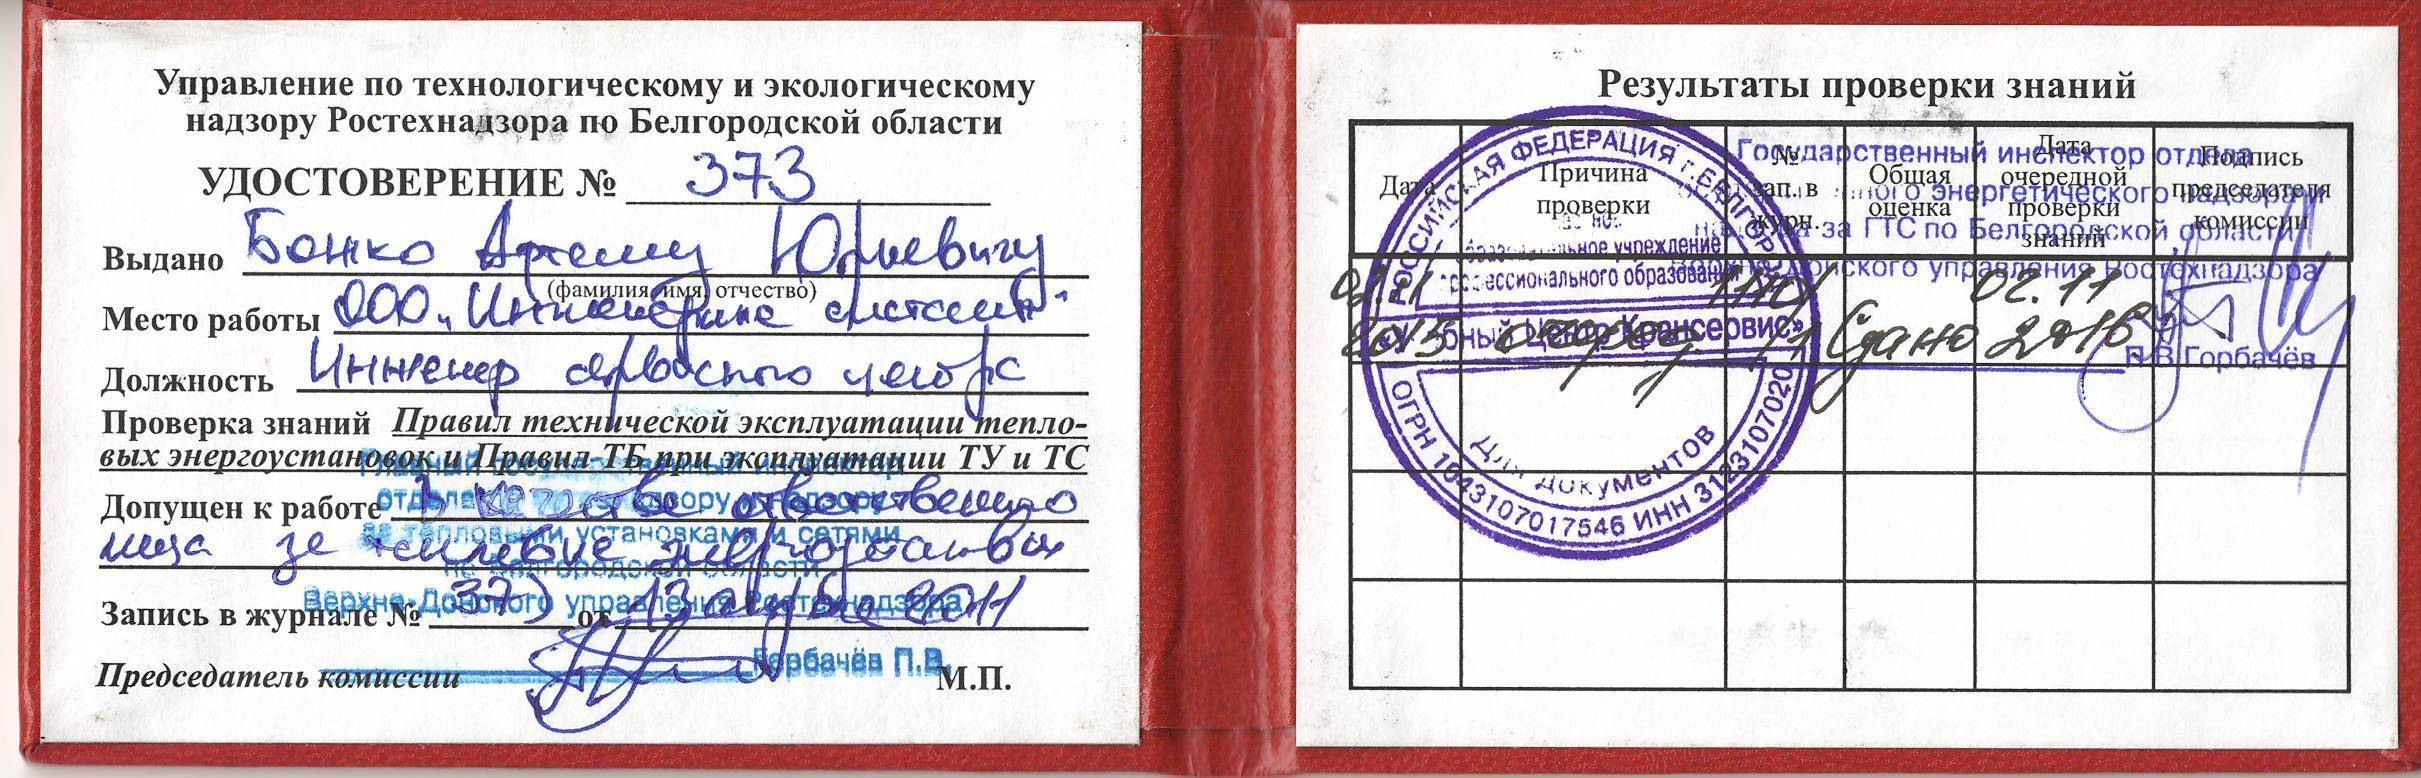 Управление по технологическому и экологическому
надзору Ростехнадзора по Белгородской области
УДОСТОВЕРЕНИЕ № 373
Выдано Божко Артему Юрьевичу
(фамилия, имя, отчество)
Место работы ООО „Инженерные системы"
Должность Инженер сервисного центра
Проверка знаний Правил технической эксплуатации тепло-
вых энергоустановок и Правил ТБ при эксплуатации ТУ и ТС
Допущен к работе в качестве ответственного
лица за тепловые
Главный государственный инспектор
отдела по надзору
за тепловыми установками и сетями
по Белгородской области
Верхне-Донского управления Ростехнадзора
Запись в журнале № 373 от 13
Председатель комиссии Горбачёв П.В. М.П.
Результаты проверки знаний
Дата
Причина проверки
№ зап. в журн.
Общая оценка
Дата очередной проверки знаний
Подпись председателя комиссии
02.11 2015 Сдано 02.11 2016
Государственный инспектор отдела
энергетического надзора и
надзора за ГТС по Белгородской области
Верхне-Донского управления Ростехнадзора
П.В.Горбачёв
РОССИЙСКАЯ ФЕДЕРАЦИЯ г.БЕЛГОРОД
образовательное учреждение
профессионального образования
«Учебный Центр Крансервис»
Для документов
ОГРН 1043107017546 ИНН 3123107020